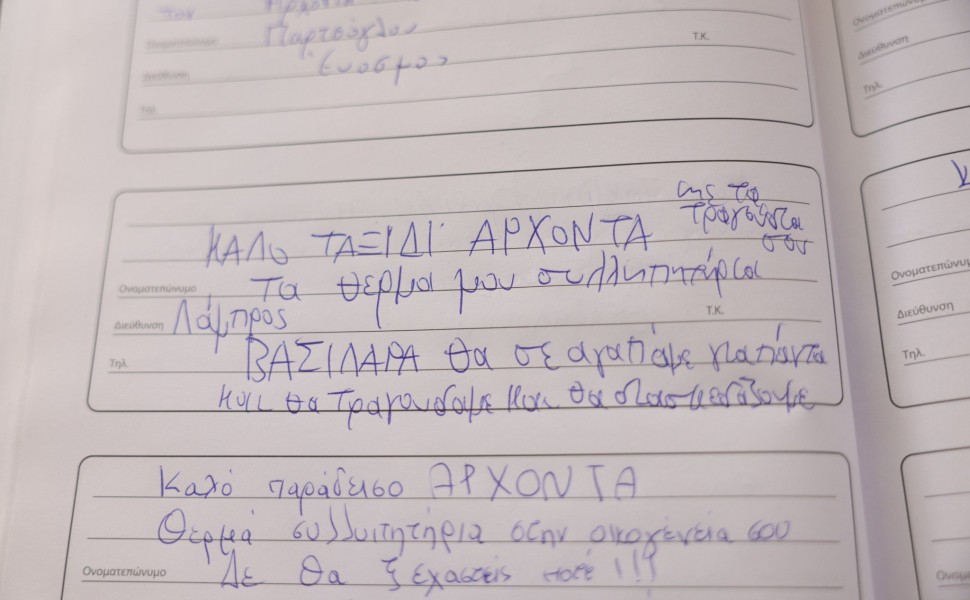 Παρτσόγλου
Ονοματεπώνυμο
Τ.Κ.
Διεύθυνση
Εύοσμος
Τηλ.
ΚΑΛΟ ΤΑΞΙΔΙ ΑΡΧΟΝΤΑ με τα τραγούδια σου
Ονοματεπώνυμο Τα θερμα μου συλληπητήρια
Διεύθυνση Λάμπρος Τ.Κ.
Τηλ. ΒΑΣΙΛΑΡΑ θα σε αγαπάμε για πάντα
και θα τραγουδαμε και θα διασκεδάζουμε
Καλό παράδεισο ΑΡΧΟΝΤΑ
Θερμά συλλυπητήρια στην οικογένεια σου
Ονοματεπώνυμο Δε θα ξεχαστείς ποτέ!!!
Ονοματεπώνυμο
Διεύθυνση
Τηλ.
Ονοματεπώνυμο
Διεύθυνση
Τηλ.